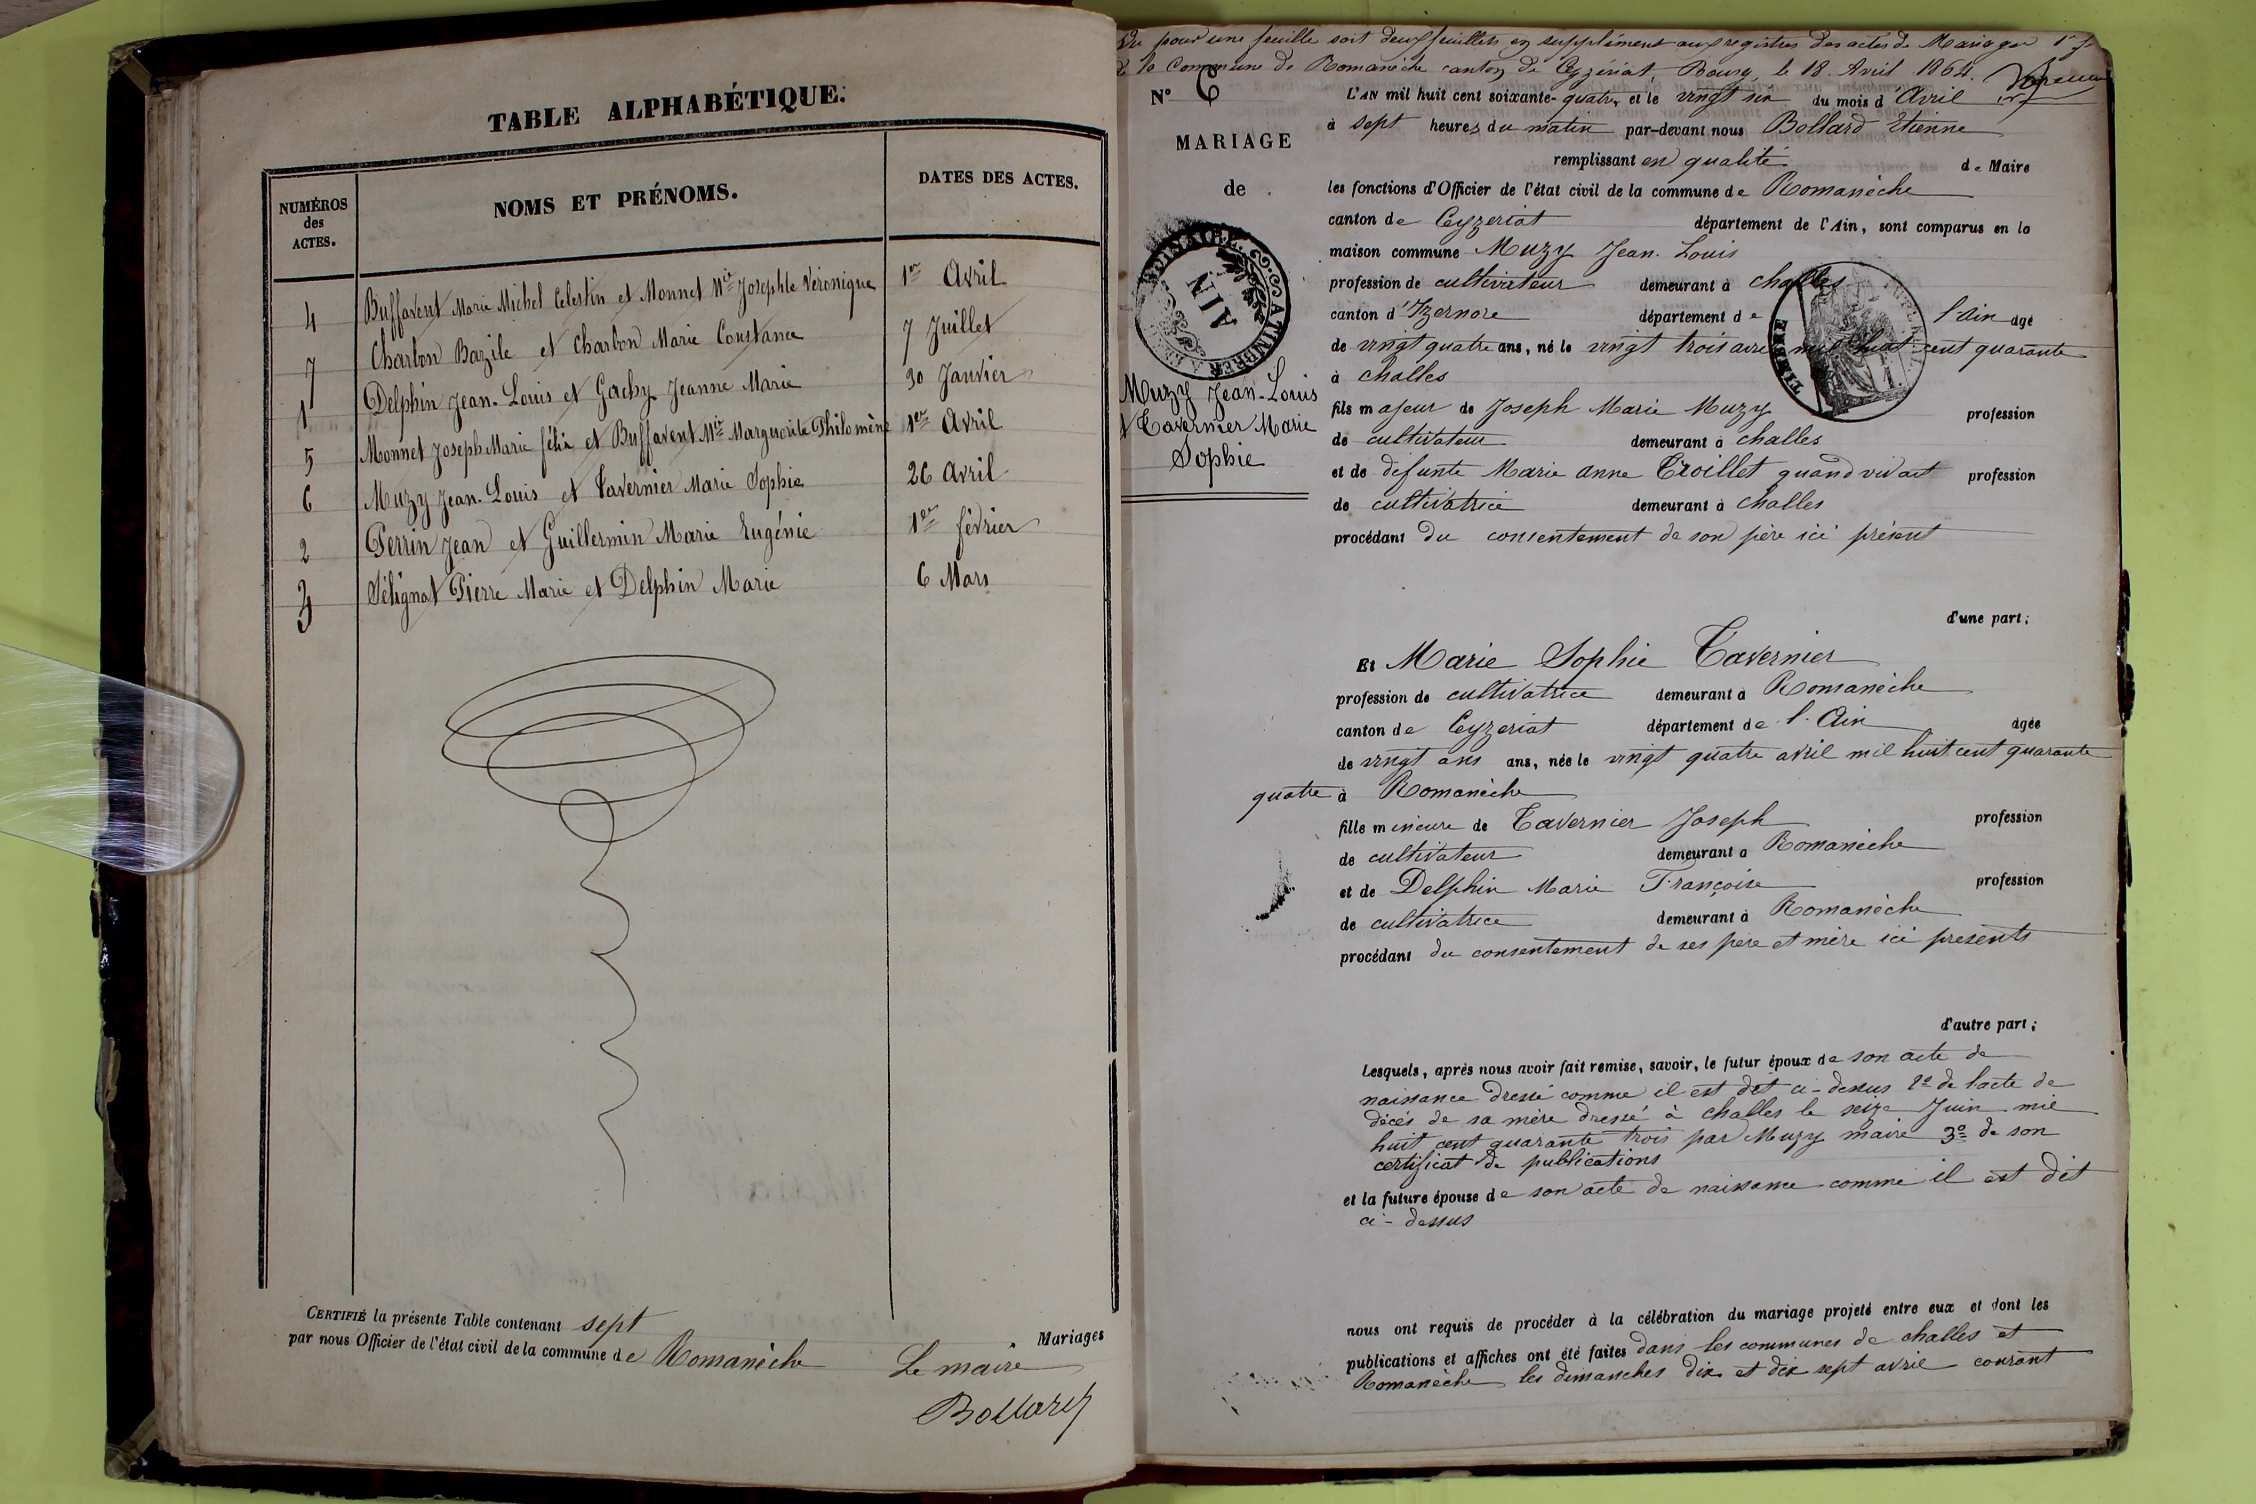 TABLE ALPHABÉTIQUE.
NUMÉROS des ACTES.
NOMS ET PRÉNOMS.
DATES DES ACTES.
4 Buffavent Marie Michel Celestin et Monnet Mie Josephte Véronique 1er Avril
7 Charbon Bazile et Charbon Marie Constance 7 Juillet
1 Delphin Jean-Louis et Gachy Jeanne Marie 30 Janvier
5 Monnet Joseph Marie félix et Buffavent Mie Marguerite Philomène 1er Avril
6 Muzy Jean-Louis et Tavernier Marie Sophie 26 Avril
2 Perrin Jean et Guillermin Marie Eugénie 1er février
3 Sélignat Pierre Marie et Delphin Marie 6 Mars
CERTIFIÉ la présente Table contenant sept Mariages
par nous Officier de l'état civil de la commune de Romanèche Le maire
Bollard
Vu pour une feuille soit deux feuillets en supplément aux registres des actes de Mariage
de la Commune de Romanèche canton de Ceyzériat, Bourg, le 18 Avril 1864.
N° 6
MARIAGE
de
AIN
Muzy Jean-Louis
et Tavernier Marie
Sophie
L'AN mil huit cent soixante-quatre et le vingt six du mois d'Avril
à sept heures du matin par-devant nous Bollard Etienne
remplissant en qualité de Maire
les fonctions d'Officier de l'état civil de la commune de Romanèche
canton de Ceyzeriat département de l'Ain, sont comparus en la
maison commune Muzy Jean-Louis
profession de cultivateur demeurant à challes
canton d'Izernore département de l'ain âgé
TIMBRE
de vingt quatre ans, né le vingt trois avril mil huit cent quarante
à challes
fils majeur de Joseph Marie Muzy profession
de cultivateur demeurant à challes
et de défunte Marie anne Troillet quand vivait profession
de cultivatrice demeurant à challes
procédant du consentement de son père ici présent
d'une part;
Et Marie Sophie Tavernier
profession de cultivatrice demeurant à Romanèche
canton de Ceyzeriat département de l'Ain âgée
de vingt ans ans, née le vingt quatre avril mil huit cent quarante
quatre à Romanèche
fille mineure de Tavernier Joseph profession
de cultivateur demeurant à Romanèche
et de Delphin Marie Françoise profession
de cultivatrice demeurant à Romanèche
procédant du consentement de ses père et mère ici présents
d'autre part;
Lesquels, après nous avoir fait remise, savoir, le futur époux de son acte de
naissance dressé comme il est dit ci-dessus 2° de l'acte de
décès de sa mère dressé à challes le seize Juin mil
huit cent quarante trois par Muzy maire 3° de son
certificat de publications
et la future épouse de son acte de naissance comme il est dit
ci-dessus
nous ont requis de procéder à la célébration du mariage projeté entre eux et dont les
publications et affiches ont été faites dans les communes de challes et
Romanèche les dimanches dix et dix sept avril courant